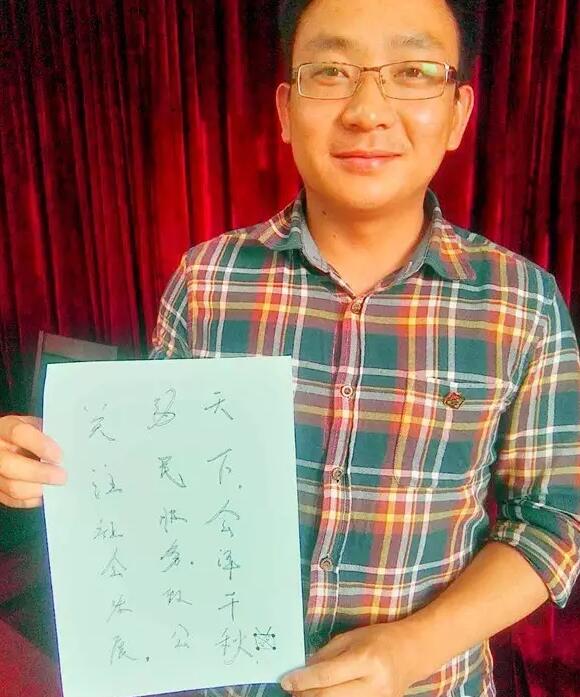 关注社会发展，
为民服务，致公
天下，会泽千秋